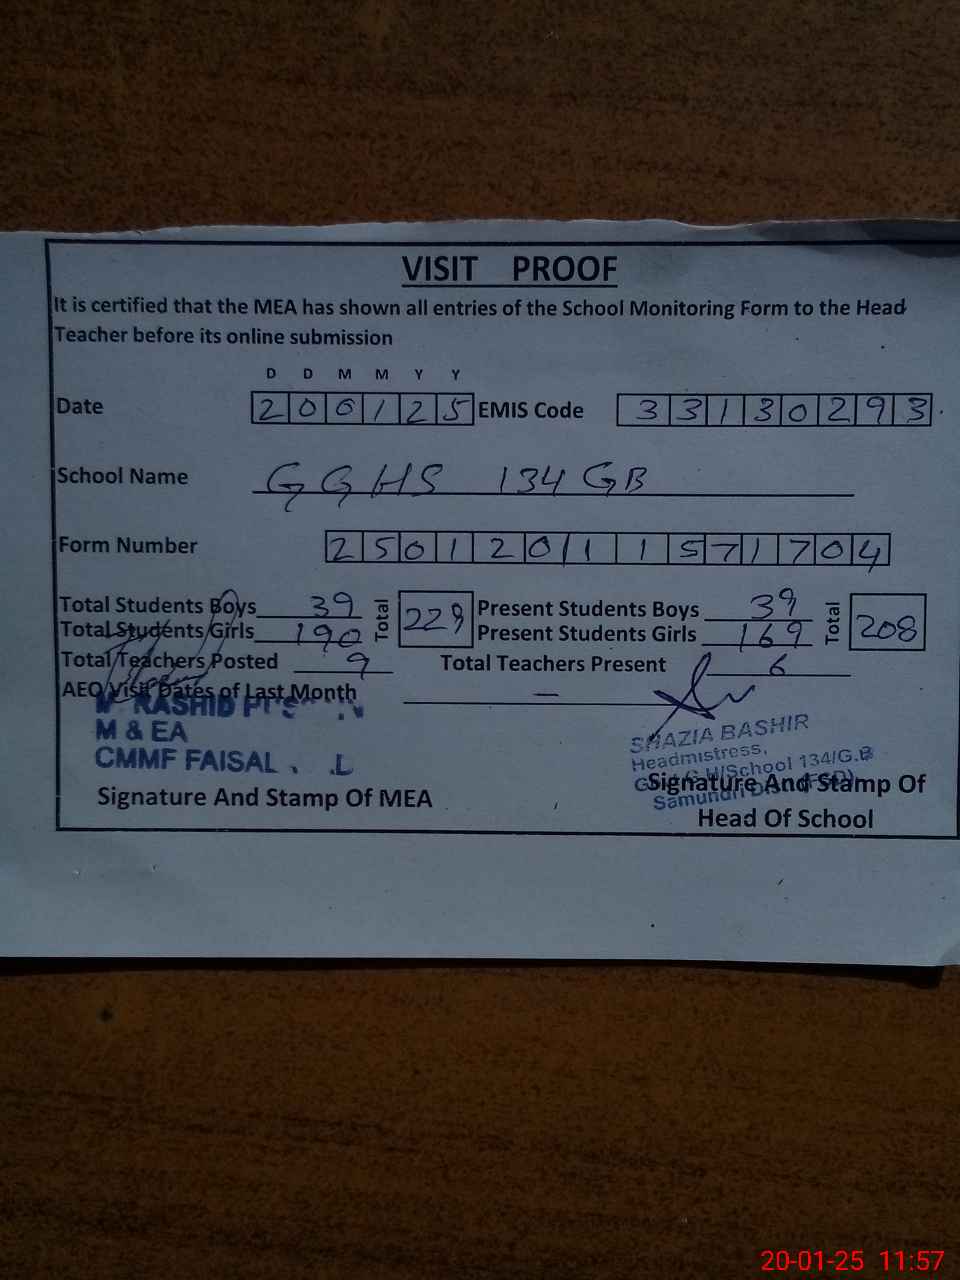 VISIT PROOF
It is certified that the MEA has shown all entries of the School Monitoring Form to the Head
Teacher before its online submission
D D M M Y Y
Date 2 0 0 1 2 5 EMIS Code 3 3 1 3 0 2 9 3
School Name GGHS 134 GB
Form Number 2 5 0 1 2 0 1 1 1 5 7 1 7 0 4
Total Students Boys 39 Total 229 Present Students Boys 39 Total 208
Total Students Girls 190 Present Students Girls 169
Total Teachers Posted 9 Total Teachers Present 6
AEO Visit Dates of Last Month —
RASHID
M & EA
CMMF FAISAL
SHAZIA BASHIR
Headmistress,
H/School 134/G.B
Samundri
Signature And Stamp Of MEA
Signature And Stamp Of
Head Of School
20-01-25 11:57